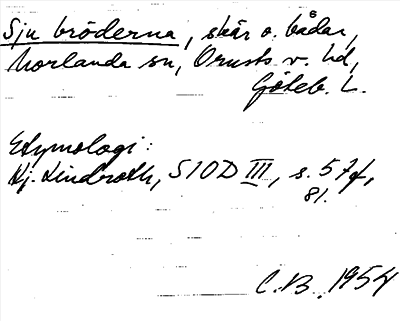 Sju bröderna, skär o. bådar,
Morlanda sn, Orusts v. hd,
Göteb. L.
Etymologi:
Hj. Lindroth, SIOD III, s. 57f,
81.
C.B. 1954